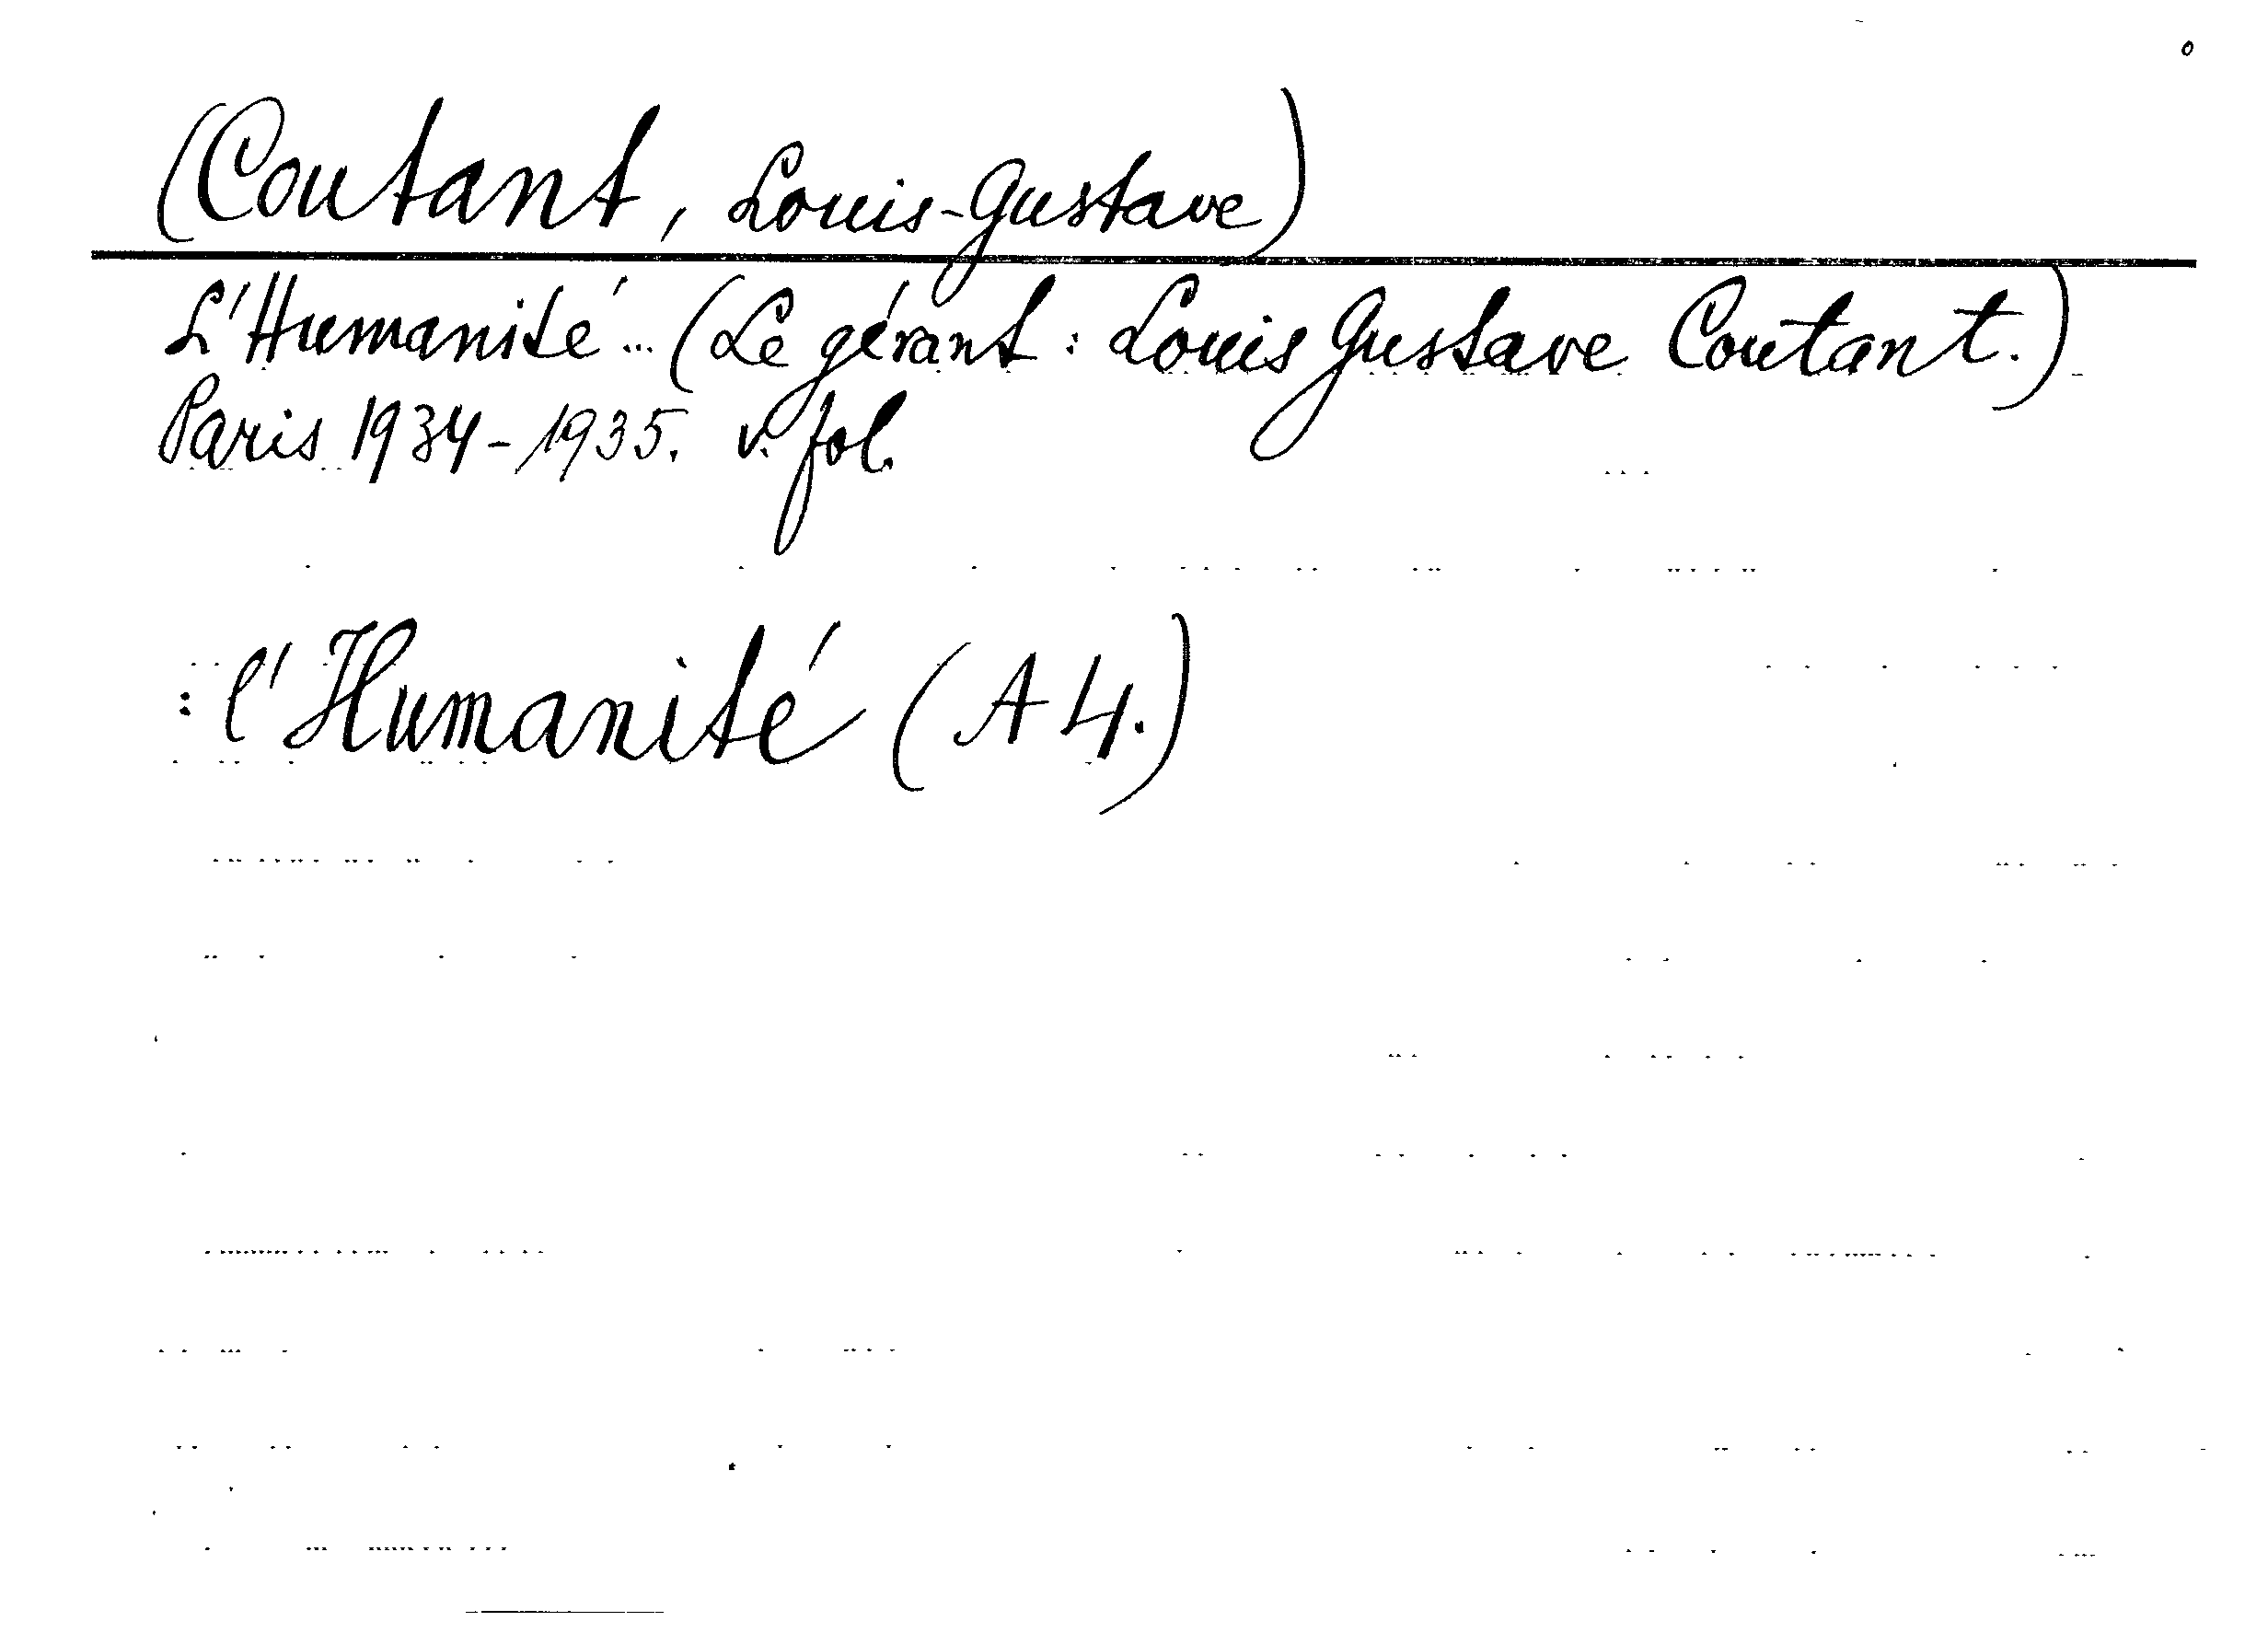 (Coutant, Louis-Gustave)
L'Humanité... (Le gérant: Louis Gustave Coutant.)
Paris 1934-1935. v. fol.
: l'Humanité (A 4.)